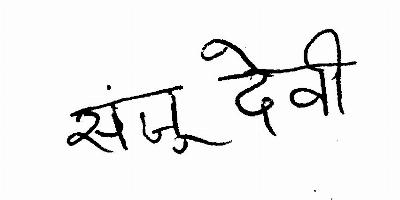 संजू देवी